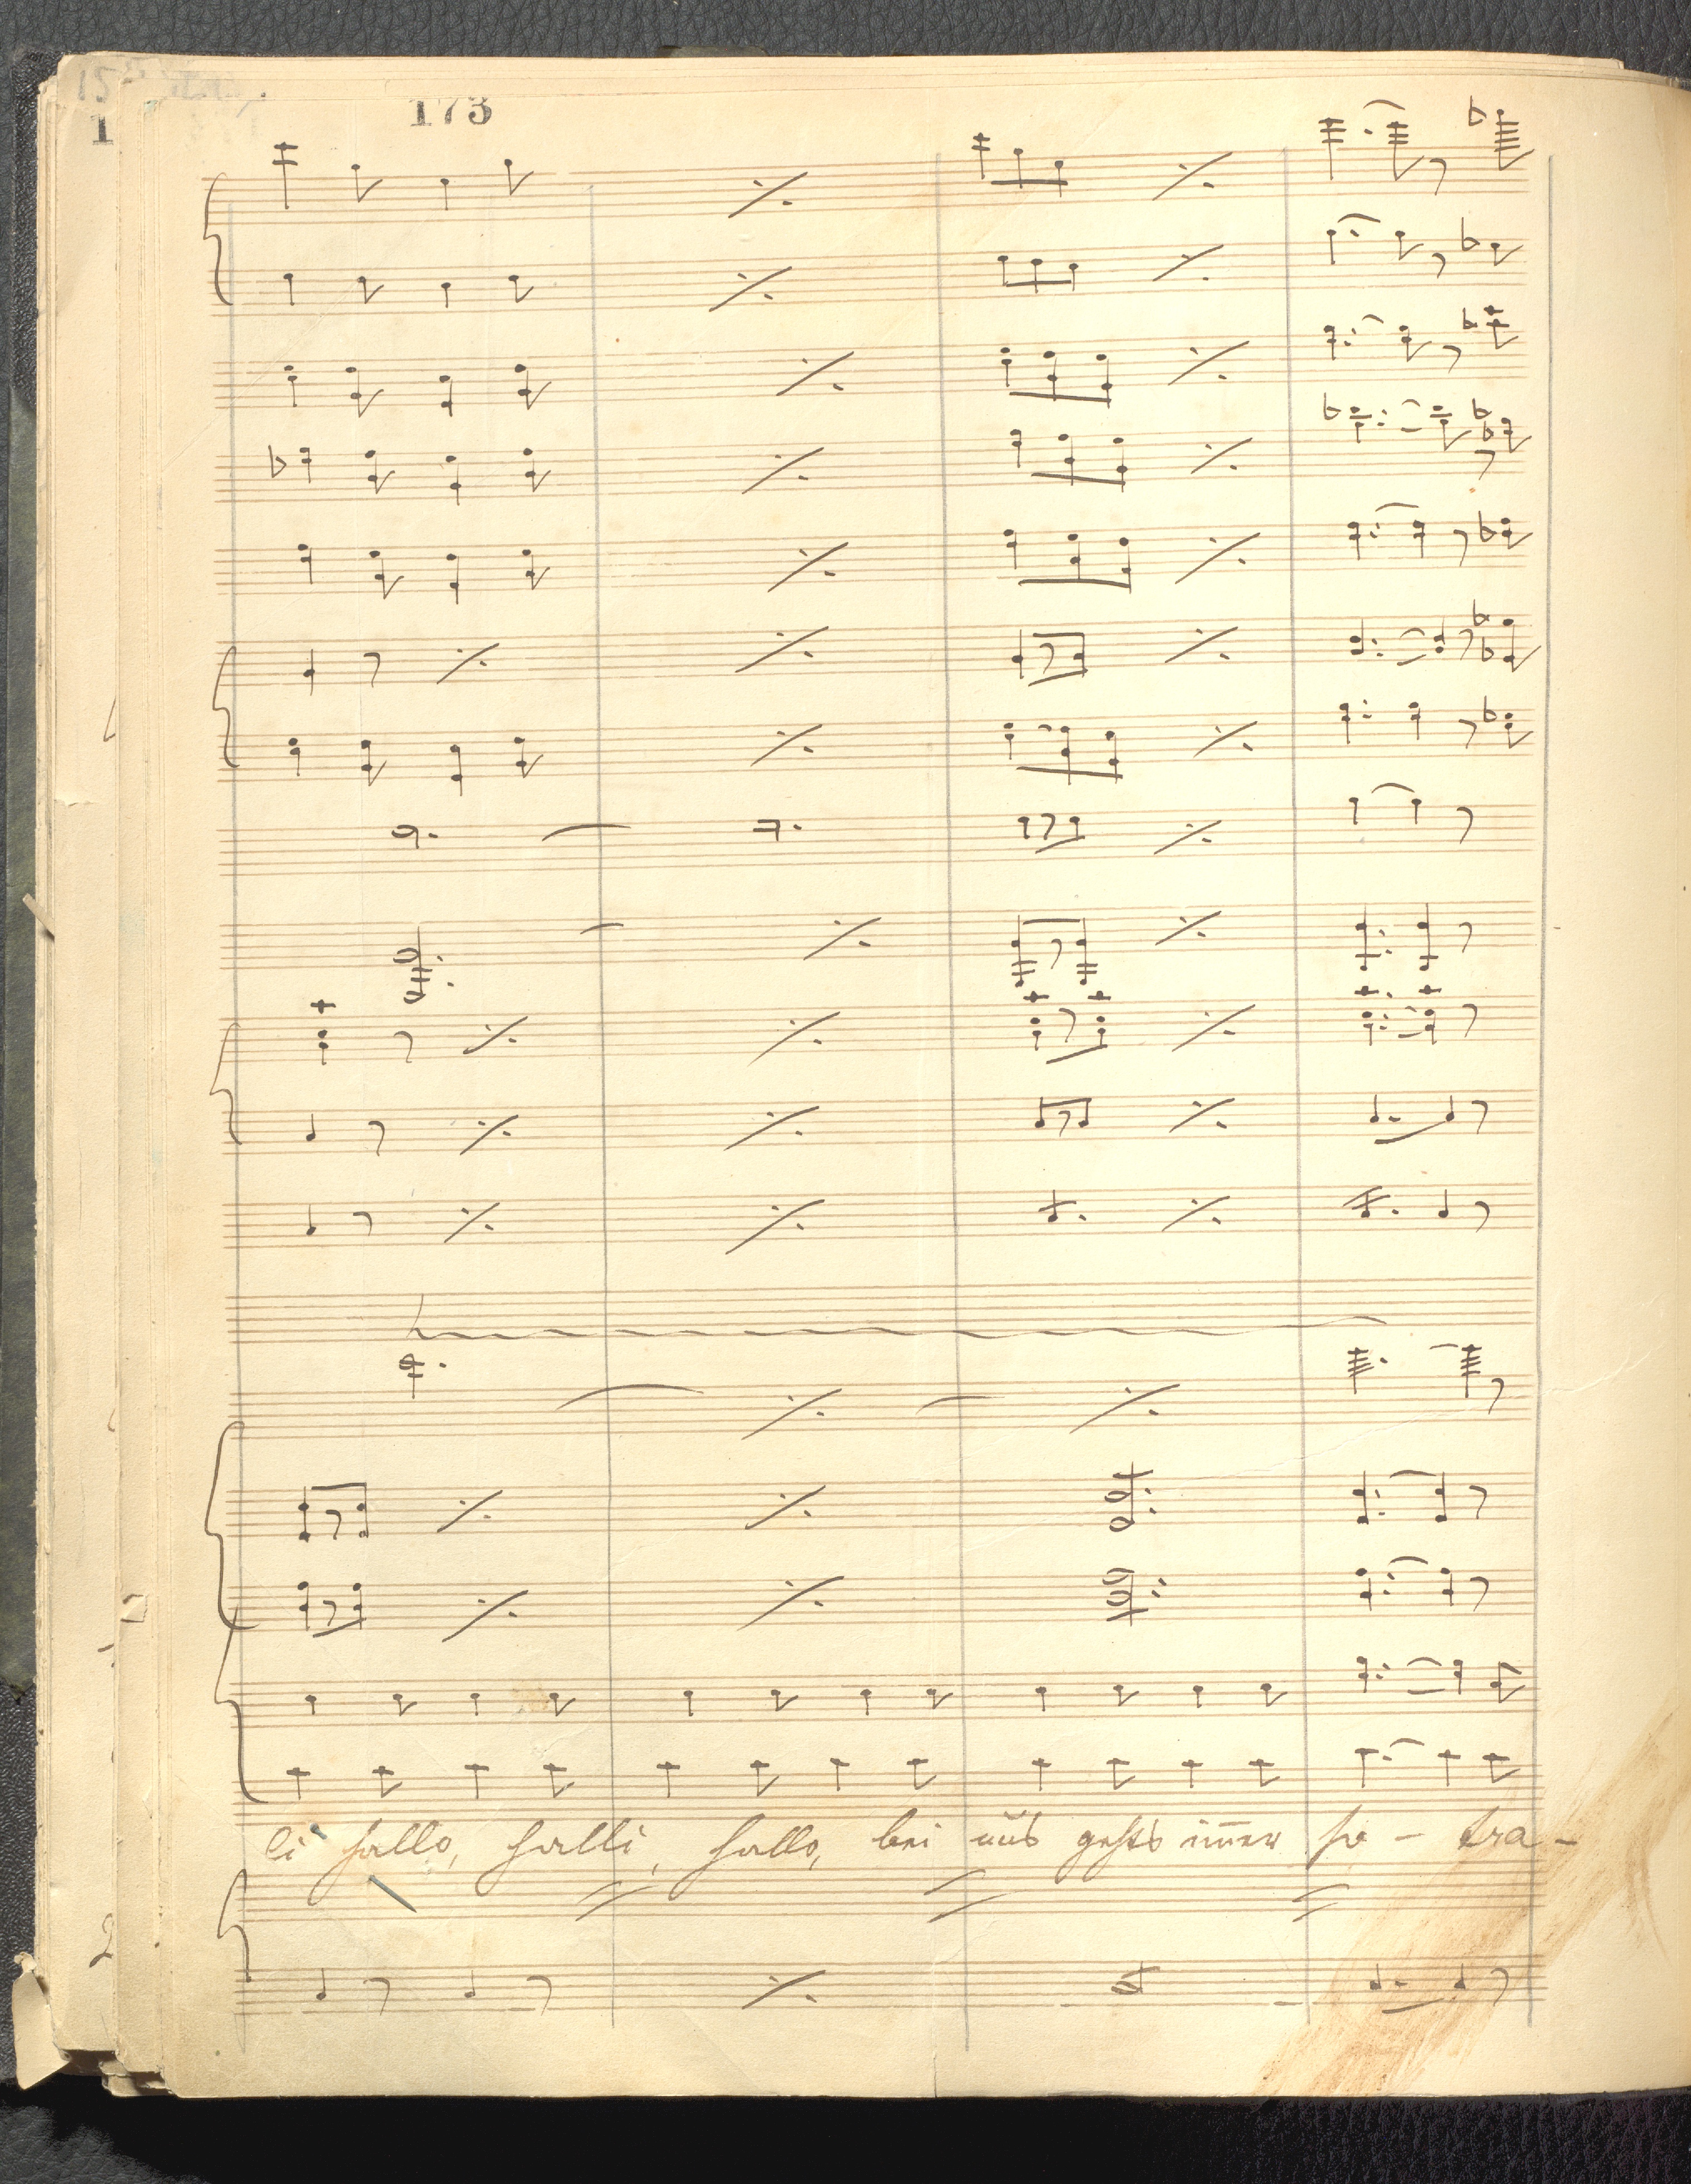 173
li hallo, halli, hallo, bei uns gehts im̄er ho - tra -